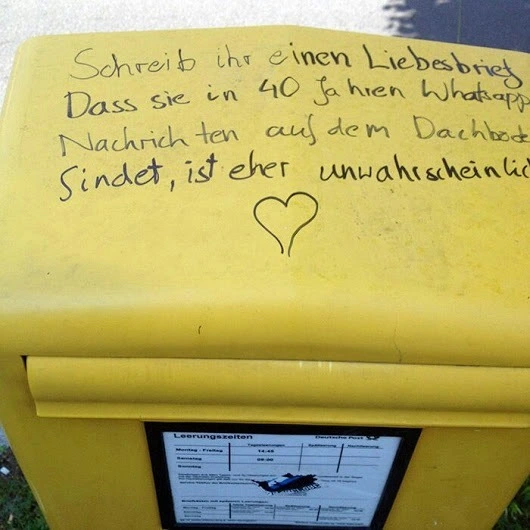 Schreib ihr einen Liebesbrief
Dass sie in 40 Jahren Whatsapp
Nachrichten auf dem Dachbode
findet, ist eher unwahrscheinlic
Leerungszeiten Deutsche Post
Tagesleerungen Spätleerung Nachtleerung
Montag - Freitag 14:45
Samstag
Sonntag